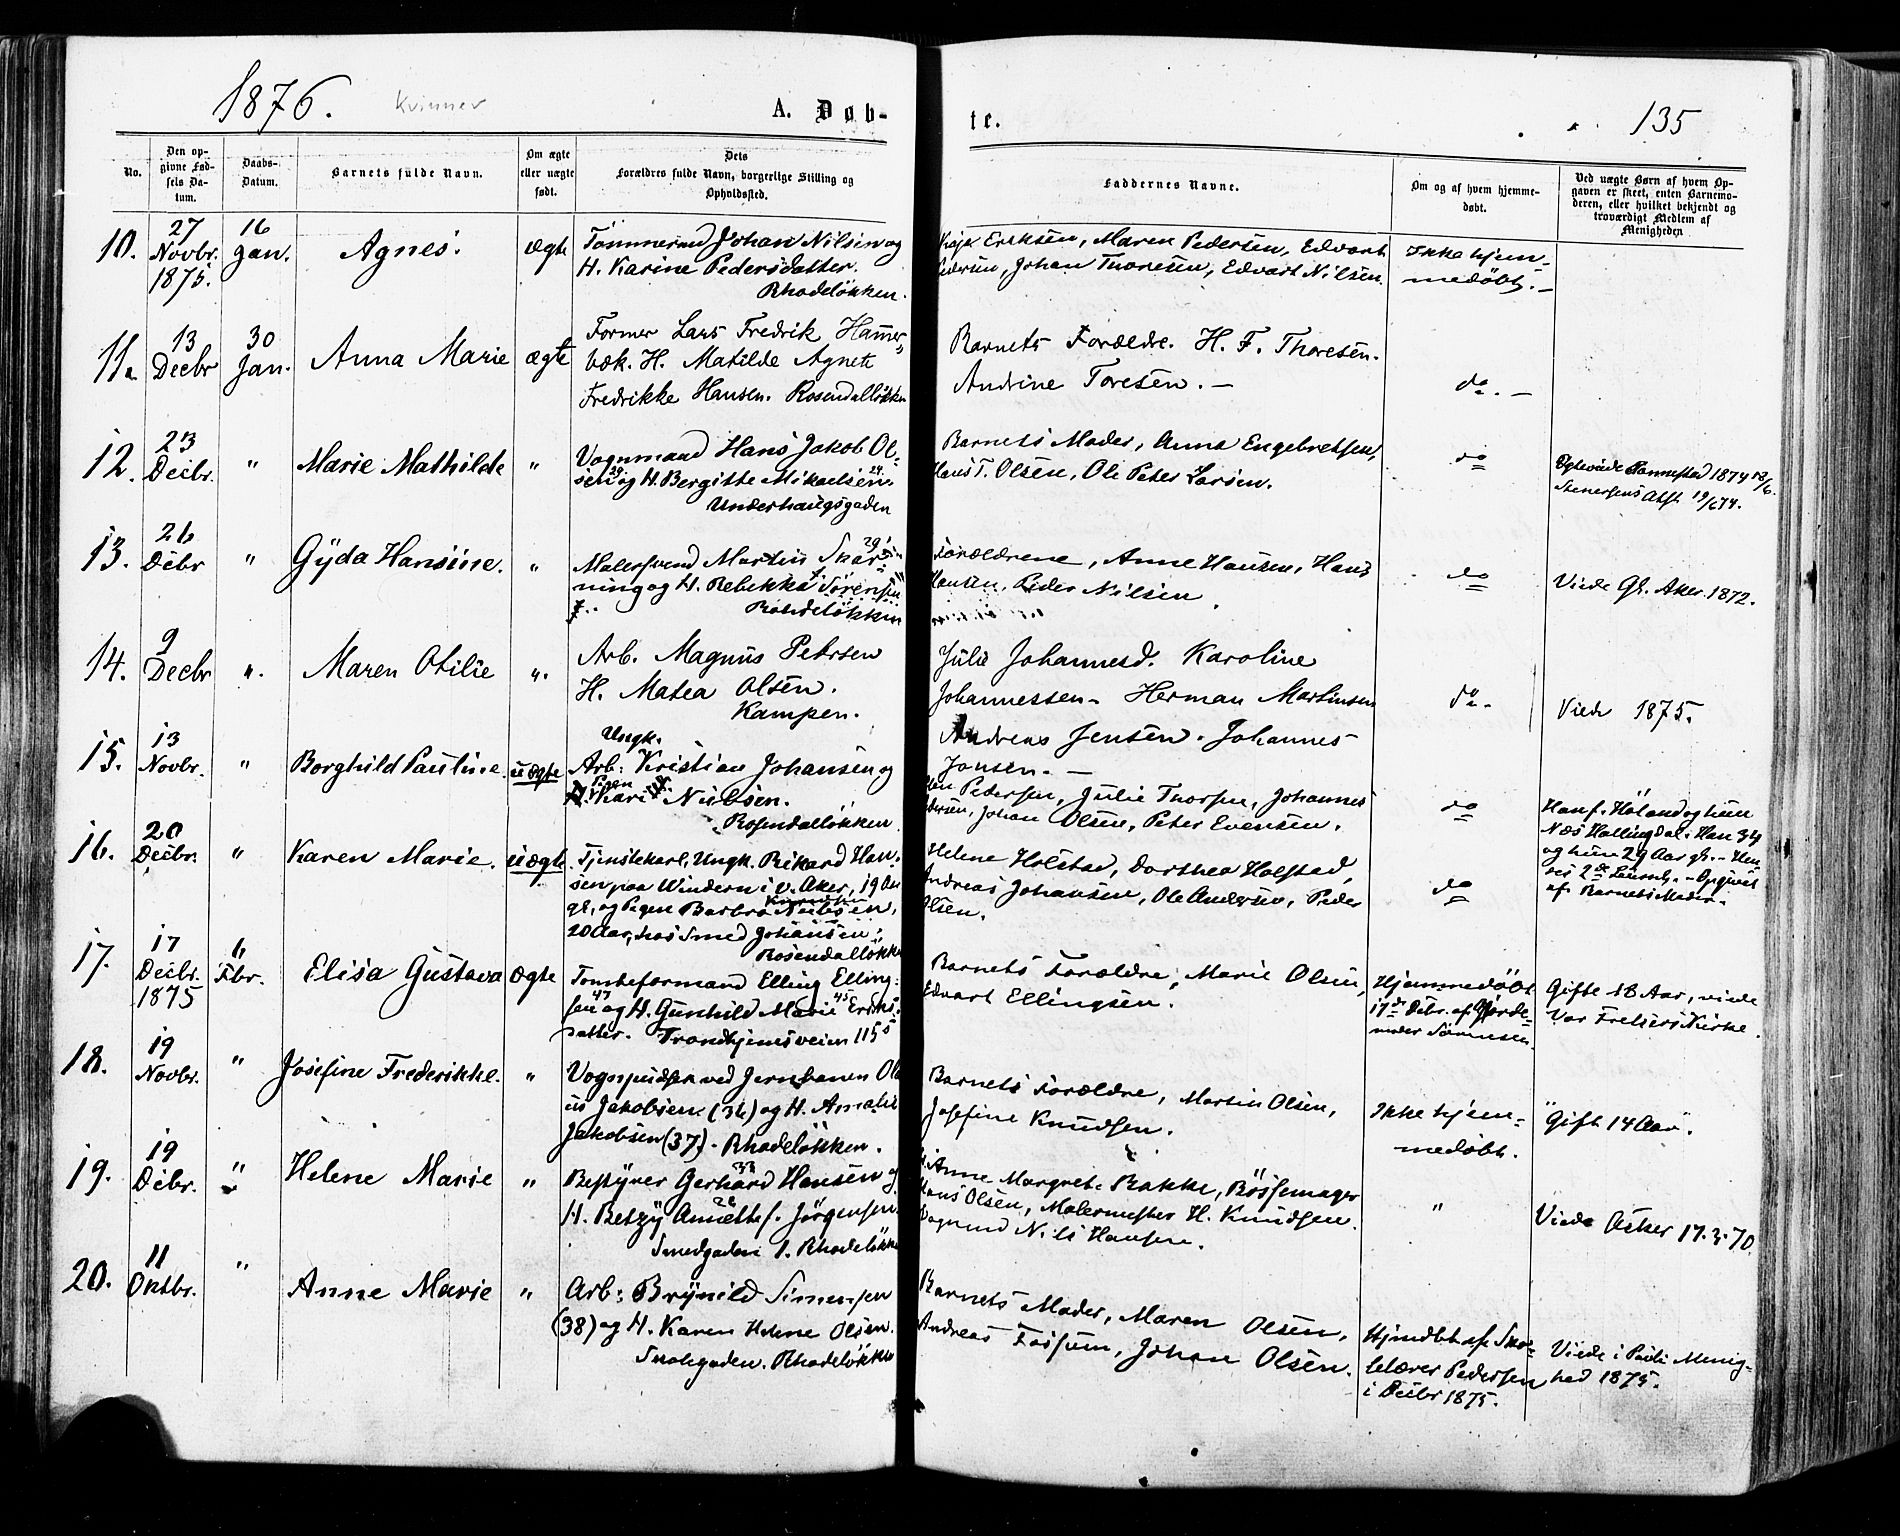 1876.
Kvinner
A. Døb-
te.
135
No.
Den op-
givne Fød-
sels Da-
tum.
Daabs-
Datum.
Barnets fulde Navn.
Om ægte
eller uægte
født.
Dets
Forældres fulde Navn, borgerlige Stilling og
Opholdssted.
Faddernes Navne.
Om og af hvem hjemme-
døbt.
Ved uægte Børn af hvem Op-
gaven er skeet, enten Barnemo-
deren, eller hvilket bekjendt og
troværdigt Medlem af
Menigheden
10.
27
Novbr.
1875.
16
Jan.
Agnes.
Ægte
Tømmermd Johan Nilsen og
H. Karine Pedersdatter.
Rhodeløkken.
Eriksen, Maren Pedersen, Edvart
Pedersen, Johan Thoresen, Edvart Nilsen.
Ikke hjem-
medøbt. -
11.
13
Decbr
30
Jan.
Anna Marie
ægte
Former Lars Fredrik Hammer-
bæk. H. Matilde Agnete
Fredrikke Hansen. Rosendalløkken
Barnets Forældre. H. F. Thoresen.
Andrine Toresen. -
do. -
12.
23
Decbr.
"
Marie Mathilde
"
Vognmand Hans Jakob Ol-
sen 29 og H. Bergitte Mikaelsen 24.
Underhaugsgaden
Barnets Moder, Anna Engebretsen,
Hans T. Olsen, Ole Peter Larsen.
do
1874
Stenersens Attst. 19/6 74.
13.
26
Decbr
"
Gyda Hansine.
"
Malersvend Martin Skar- 29
ning og H. Rebekka Sørensen
Rodeløkken
Forældrene, Anne Hansen, Hans
Hansen, Peder Nilsen
do
Viede Gl. Aker 1872.
14.
9
Decbr
".
Maren Otilie
".
Arb. Magnus Petersen
H. Matea Olsen.
Kampen.
Julie Johannesd. Karoline
Johannessen - Herman Martinsen
Andreas Jensen. Johannes
Jonsen. -
do -
Viede 1875.
15.
13
Novbr.
"
Borghild Pauline.
uægte
Ungk.
Arb: Kristian Johansen og
Pigen
Kari Nielsen.
Rosendalløkken
Pedersen, Julie Thorsen, Johannes
Pedersen, Johan Olsen, Peter Evensen.
do
Han f. Høland og hun
Næs Hallingdal. Han 34
og hun 29 Aar gl. - Hen-
des 2det Leierm. - Opgivet
af Barnets Moder.
16.
20
Decbr.
"
Karen Marie.
uægte
Tjenstekarl, Ungk. Rikard Han-
sen paa Windern i v. Aker, 19 Aar
gl., og Pigen Barbro Nielsen,
20 Aar, hos Smed Johansen.
Rosendalløkken
Helene Holstad, Dorthea Holstad,
Andreas Johansen, Ole Andersen, Peder
Olsen.
do
17.
17
Decbr.
1875
6
Fbr.
Elisa Gustava
Ægte
Tomteformand Elling Elling-
sen 47 og H. Gunhild Marie 45 Eriks-
datter. Trondhjemsveien 115
Barnets Forældre, Marie Olsen,
Edvart Ellingsen.
Hjemmedøbt
17de Decbr. af Gjorde-
moder Sørensen.
Gifte 18 Aar, viede
Vor Frelsers Kirke.
18.
19
Novbr.
"
Josefine Frederikke.
"
Vognpudser ved Jernbanen Ola-
us Jakobsen (36) og H. Amalie
Jakobsen (37) - Rhodeløkken.
Barnets Forældre, Martin Olsen,
Josefine Knudsen.
Ikke hjem-
medøbt.
Gift 14 Aar.
19.
19
Decbr.
"
Helene Marie
"
Bestyrer Gerhard 33 Hansen og
H. Betzy Annette 26 f. Jörgensen
Smedgaden 1. Rhodeløkken
Anne Margrete Bakke, Bössemager
Hans Olsen, Malermester H. Knudsen.
Nils Hansen.
"
Viede Asker 17.3.70.
20.
11
Oktbr.
"
Anne Marie
"
Arb: Brynild Simensen
(38) og H. Karen Helene Olsen.
Skolegaden. Rhodeløkken
Barnets Moder, Maren Olsen,
Andreas Fossum, Johan Olsen.
Hjmdbt af Sko-
lelærer Pedersen
i Decbr 1875.
Viede i Pauli Menig-
hed 1875.